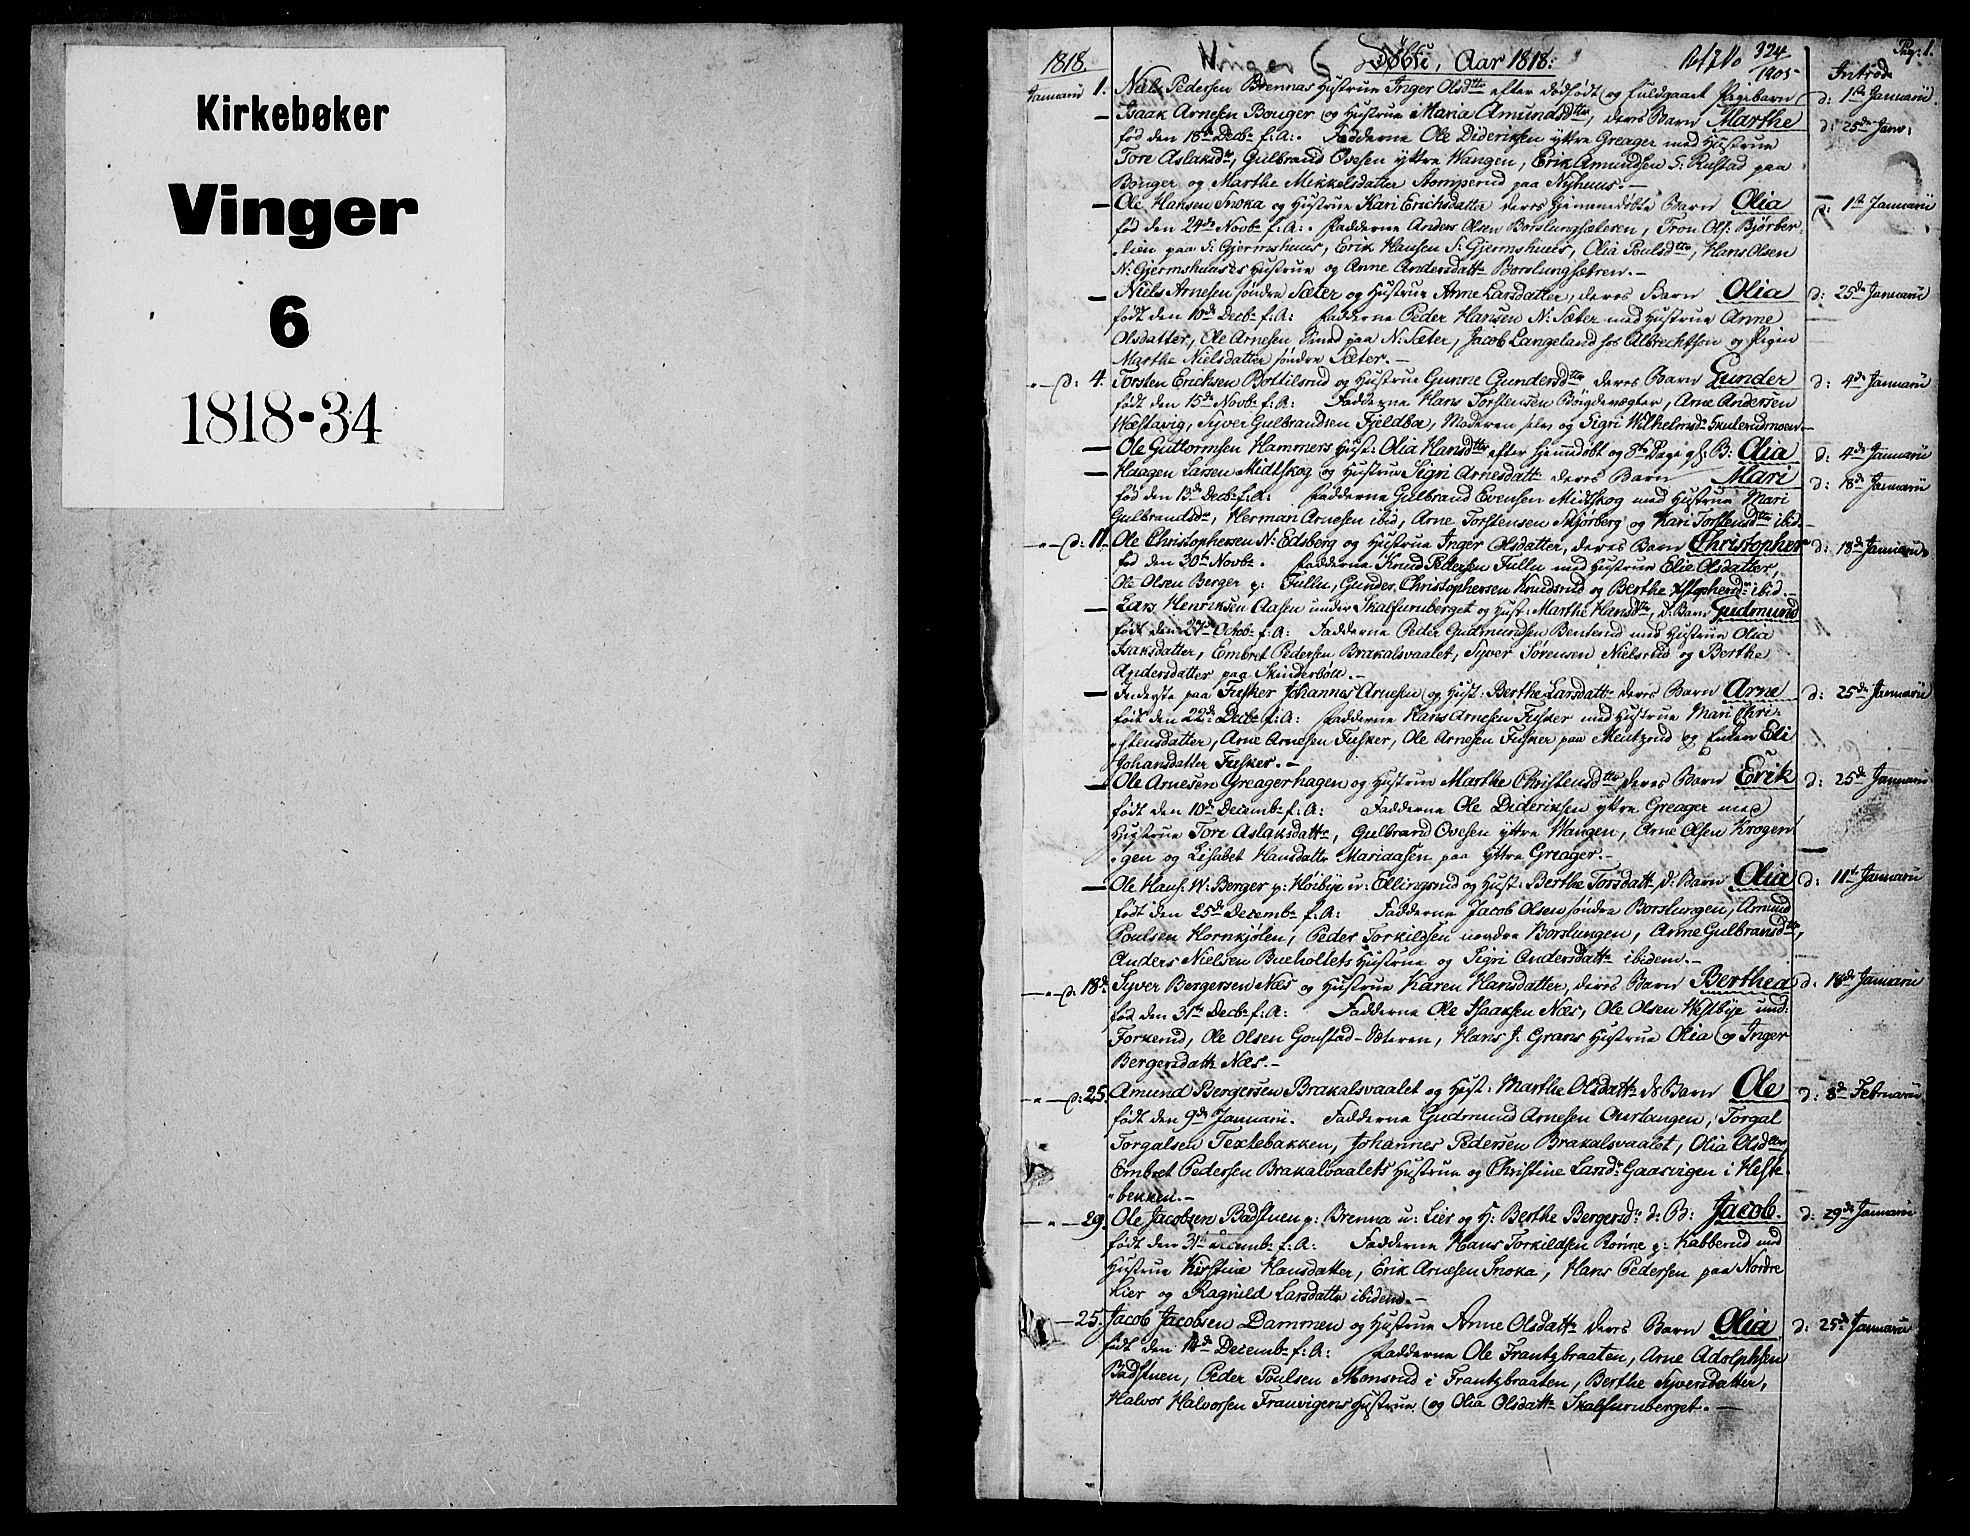 Kirkebøker
Vinger
6
1818-34
1818. Vinger 6 Døbte, Aar 1818: 324 1905 Pag: 1.
Introd
Januarii 1. Niels Pedersen Brennas Hustrue Inger Olsdttr efter dødfødt og fuldgaaet Pigebarn d: 1ste Januarii.
— Isaak Arnesen Bouger og Hustrue Maria Amundsdttr, deres Barn Marthe d: 25de Janv:
fød den 18de Decbr f: A: Fadderne Ole Dideriksen yttre Greager med Hustrue
Tore Aslaksdtr, Gulbrand Ovesen yttre Wangen, Erik Amundsen S: Rustad paa
Bouger og Marthe Mikkelsdatter Stomperud paa Nyhuus.—
— Ole Hansen Snoka og Hustrue Kari Erichsdatter deres hjemmedøbte Barn Olia d: 1ste Januarii
fød den 24de Novbr f: A: Fadderne Anders Olsen Borslungsæteren, Tron Ols: Bjørber
lien paa S: Gjermshuus, Erik Hansen S: Gjermshuus, Olia Poulsdttr, Hans Olsen
N: Gjermshuuses Hustrue og Anne Andersdattr Borslungsætren.—
— Niels Arnesen søndre Sæter og Hustrue Anne Larsdatter, deres Barn Olia d: 25de Januarii
født den 10de Decbr f: A: Fadderne Peder Hansen N: Sæter med Hustrue Anne
Olsdatter, Ole Arnesen Smed paa N: Sæter, Jacob Langeland hos Albrechtson og Pigen
Marthe Nielsdatter søndre Sæter.—
" — d: 4. Torsten Erichsen Bottilsrud og Hustrue Gunne Gundersdttr deres Barn Gunder d: 4de Januarii
født den 15de Novbr f: A: Fadderne Hans Torstensen Bøigdevægter, Arne Andersen
Wæstavig, Syver Gulbrandsen Fjeldboe, Moderen selv og Sigri Wilhelmsdr Skulerudmoen—
— Ole Guttormsen Hammers Hust: Olia Hansdttr efter hjemdøbt og 8te Dage gl: B: Olia d: 4de Januarii
— Haagen Larsen Midtskog og Hustrue Sigri Arnesdattr deres Barn Mari d: 18de Januarii
fød den 13de Decbr f: A: Fadderne Gulbrand Evensen Midtskog med Hustrue Mari
Gulbrandsdr, Herman Arnesen ibid, Arne Torstensen Skjørberg og Kari Torstensdttr ibid—
" — d: 11. Ole Christophersen N: Edsberg og Hustrue Inger Olsdatter, deres Barn Christopher d: 18de Januarii
fød den 30te Novbr. Fadderne Knud Pedersen Tullu med Hustrue Elie Olsdatter,
Ole Olsen Berger p: Tullu, Gunder Christophersen Knudsrud og Berthe Xstophersdr ibid.—
— Lars Henriksen Aasen under Skalfurnberget og Hust: Marthe Hansdttr, d: Barn Gudmund
født den 27de Octobr f: A: Fadderne Peder Gudmundsen Benterud med Hustrue Olia
Isaksdatter, Embret Pedersen Brakalsvaalet, Syver Sørensen Nielsrud og Berthe
Andersdatter paa Skinderbøll.—
— Inderste paa Fusker Johannes Arnesen og Hust: Berthe Larsdattr deres Barn Arne d: 25de Januarii
født den 22de Decbr f: A: Fadderne Hans Arnesen Fusker med Hustrue Mari Chri-
stensdatter, Arne Arnesen Fusker, Ole Arnesen Fusker paa Meutzrud og Enken Eli
Johansdatter Fusker.—
— Ole Arnesen Greagerhagen og Hustrue Marthe Christensdttr deres Barn Erik d: 25de Januarii
født den 10de Decembr f: A: Fadderne Ole Dideriksen yttre Greager med
Hustrue Tore Aslaksdattr, Gulbrand Ovesen yttre Wangen, Arne Olsen Krogen
gen og Lisabet Hansdattr Mariaasen paa yttre Greager.—
— Ole Hans: W: Berger p: Høibye u: Ellingsrud og Hust: Berthe Torsdattr d: Barn Olia d: 11te Januarii
født den 25de Decembr f: A: Fadderne Jacob Olsen søndre Borslungen, Amund
Poulsen Hornkjølen, Peder Torkildsen nordre Borslungen, Anne Gulbransdttr,
Anders Nielsen Bueholtets Hustrue og Sigri Andersdattr ibidem.—
" — d: 18de Syver Bergersen Næs og Hustrue Karen Hansdatter, deres Barn Berthea d: 18de Januarii
fød den 31te Decbr f: A: Fadderne Ole Isaksen Næs, Ole Olsen Westbye und:
Torkerud, Ole Olsen Goustad-Sæteren, Hans J: Grans Hustrue Olia og Inger
Bergersdattr Næs.—
" — d: 25. Amund Bergersen Brakalsvaalet og Hust: Marthe Olsdattr ds Barn Ole d: 8de Februarii
født den 9de Januarii. Fadderne Gudmund Arnesen Overlangen, Torgal
Torgalsen Textebakken, Johannes Pedersen Brakalsvaalet, Olia Olsdttr,
Embret Pedersen Brakalvaalets Hustrue og Christine Larsdr Gaarvigen i Hest-
bekken.—
" — 29. Ole Jacobsen Badstuen p: Brenna u: Lier og H: Berthe Bergersdr d: B: Jacob. d: 29de Januarii
født den 31te Decembr f: A: Fadderne Hans Torkildsen Rønne p: Kabberud med
Hustrue Kirstine Hansdatter, Erik Arnesen Snoka, Hans Pedersen paa Nordre
Lier og Ragnild Larsdattr ibidem.—
— 25. Jacob Jacobsen Dammen og Hustrue Anne Olsdattr deres Barn Olia d: 25de Januarii
født den 14de Decembr f: A: Fadderne Ole Frantzbraaten, Arne Adolphsen
Badstuen, Peder Poulsen Monsrud i Frantzbraaten, Berthe Syversdatter,
Halvor Halvorsen Frauvigens Hustrue og Olia Olsdattr Skalfurnberget.—